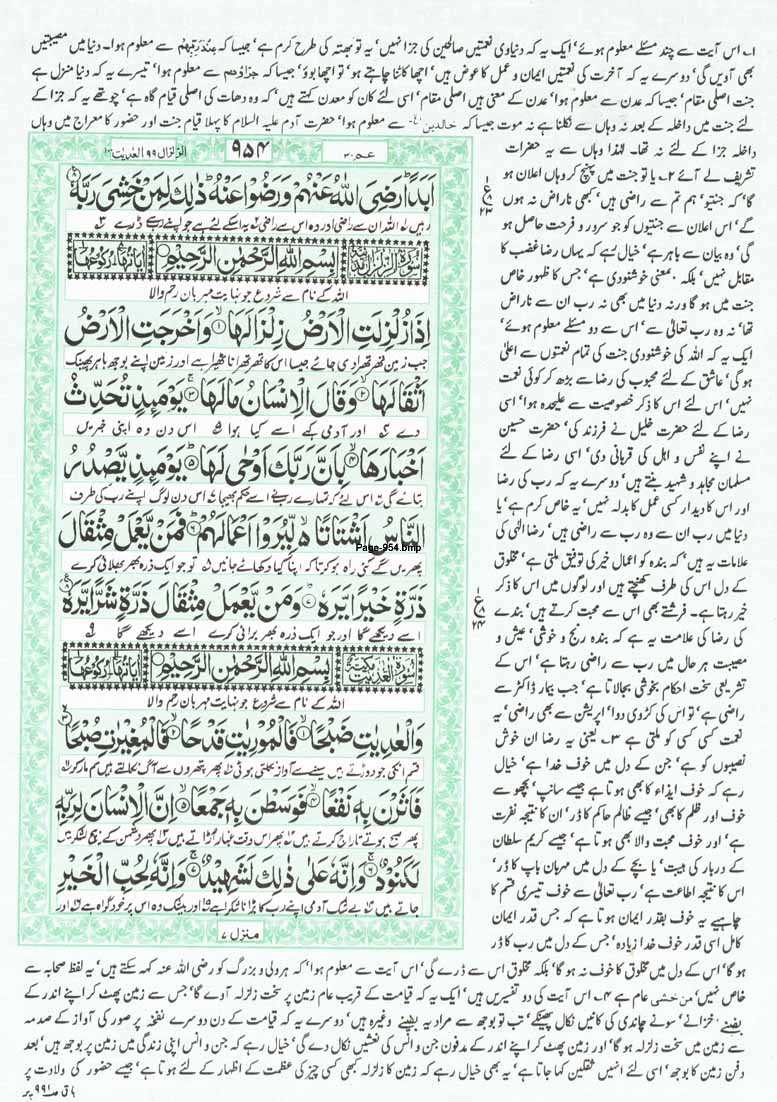 ۱۔ اس آیت سے چند مسئلے معلوم ہوئے' ایک یہ کہ دنیاوی نعمتیں صالحین کی جزا نہیں' یہ تو بھتہ کی طرح کرم ہے' جیسا کہ عند ربهم سے معلوم ہوا۔ دنیا میں مصیبتیں
بھی آویں گی' دوسرے یہ کہ آخرت کی نعمتیں ایمان و عمل کا عوض ہیں' اچھا کاٹنا چاہتے ہو' تو اچھا بوؤ' جیسا کہ جزاؤهم سے معلوم ہوا' تیسرے یہ کہ دنیا منزل ہے
جنت اصلی مقام' جیسا کہ عدن سے معلوم ہوا' عدن کے معنی ہیں اصلی مقام' اسی لئے کان کو معدن کہتے ہیں' کہ وہ دھات کی اصلی قیام گاہ ہے' چوتھے یہ کہ جزا کے
لئے جنت میں داخلہ کے بعد نہ وہاں سے نکلنا ہے نہ موت جیسا کہ خالدین سے معلوم ہوا' حضرت آدم علیہ السلام کا پہلا قیام جنت اور حضور کا معراج میں وہاں
داخلہ جزا کے لئے نہ تھا۔ لہٰذا وہاں سے یہ حضرات
تشریف لے آئے ۲۔ یا تو جنت میں پہنچ کر وہاں اعلان ہو
گا' کہ جنتیو' ہم تم سے راضی ہیں' کبھی ناراض نہ ہوں
گے' اس اعلان سے جنتیوں کو جو سرور و فرحت حاصل ہو
گی' وہ بیان سے باہر ہے' خیال رہے کہ یہاں رضا غضب کا
مقابل نہیں' بلکہ بمعنی خوشنودی ہے' جس کا ظہور خاص
جنت میں ہو گا ورنہ دنیا میں بھی نہ رب ان سے ناراض
تھا' نہ وہ رب تعالیٰ سے' اس سے دو مسئلے معلوم ہوئے'
ایک یہ کہ اللہ کی خوشنودی جنت کی تمام نعمتوں سے اعلیٰ
ہو گی' عاشق کے لئے محبوب کی رضا سے بڑھ کر کوئی نعمت
نہیں' اس لئے اس کا ذکر خصوصیت سے علیحدہ ہوا' اسی
رضا کے لئے حضرت خلیل نے فرزند کی' حضرت حسین
نے اپنے نفس و اہل کی قربانی دی' اسی رضا کے لئے
مسلمان مجاہد و شہید بنتے ہیں' دوسرے یہ کہ رب کی رضا
اور اس کا دیدار کسی عمل کا بدلہ نہیں' یہ خاص کرم ہے' یا
دنیا میں رب ان سے وہ رب سے راضی ہیں' رضا الٰہی کی
علامات یہ ہیں' کہ بندہ کو اعمال خیر کی توفیق ملتی ہے' مخلوق
کے دل اس کی طرف کھنچتے ہیں اور لوگوں میں اس کا ذکر
خیر رہتا ہے۔ فرشتے بھی اس سے محبت کرتے ہیں' بندے
کی رضا کی علامت یہ ہے کہ بندہ رنج و خوشی' عیش و
مصیبت ہر حال میں رب سے راضی رہتا ہے' اس کے
تشریعی سخت احکام بخوشی بجالاتا ہے' جب بیمار ڈاکٹر سے
راضی ہے' تو اس کی کڑوی دوا' اپریشن سے بھی راضی' یہ
نعمت کسی کسی کو ملتی ہے ۳۔ یعنی یہ رضا ان خوش
نصیبوں کو ہے' جن کے دل میں خوف خدا ہے' خیال
رہے کہ خوف ایذاء کا بھی ہوتا ہے جیسے سانپ' بچھو سے
خوف اور ظلم کا بھی' جیسے ظالم حاکم کا ڈر' ان کا نتیجہ نفرت
ہے' اور خوف محبت والا بھی ہوتا ہے' جیسے کریم سلطان
کے دربار کی ہیبت' یا بچے کے دل میں مہربان باپ کا ڈر'
اس کا نتیجہ اطاعت ہے' رب تعالیٰ سے خوف تیسری قسم کا
چاہیے یہ خوف بقدر ایمان ہوتا ہے کہ جس قدر ایمان
کامل اسی قدر خوف خدا زیادہ' جس کے دل میں رب کا ڈر
عم ۳۰
۹۵۴
الزلزال ۹۹ العدیت ۱۰۰
اَبَدًا ؕ رَضِیَ اللّٰهُ عَنْهُمْ وَ رَضُوْا عَنْهُ ؕ ذٰلِكَ لِمَنْ خَشِیَ رَبَّهٗ
رہیں اللہ ان سے راضی اور وہ اس سے راضی یہ اسکے لئے ہے جو اپنے رب سے ڈرے
سورة الزلزال بِسْمِ اللّٰهِ الرَّحْمٰنِ الرَّحِیْمِ
اللہ کے نام سے شروع جو نہایت مہربان رحم والا
اِذَا زُلْزِلَتِ الْاَرْضُ زِلْزَالَهَا وَ اَخْرَجَتِ الْاَرْضُ
جب زمین تھرتھرا دی جائے جیسا اس کا تھرتھرانا ٹھہرا ہے اور زمین اپنے بوجھ باہر پھینک
اَثْقَالَهَا وَ قَالَ الْاِنْسَانُ مَا لَهَا یَوْمَىٕذٍ تُحَدِّثُ
دے اور آدمی کہے اسے کیا ہوا اس دن وہ اپنی خبریں
اَخْبَارَهَا بِاَنَّ رَبَّكَ اَوْحٰى لَهَا یَوْمَىٕذٍ یَّصْدُرُ
بتائے گی اس لئے کہ تمہارے رب نے اسے حکم بھیجا اس دن لوگ اپنے رب کی طرف
النَّاسُ اَشْتَاتًا لِّیُرَوْا اَعْمَالَهُمْ فَمَنْ یَّعْمَلْ مِثْقَالَ
Page-954.bmp
پھریں گے کئی راہ ہو کر تاکہ اپنا کیا دکھائے جائیں تو جو ایک ذرہ بھر بھلائی کرے
ذَرَّةٍ خَیْرًا یَّرَهٗ وَ مَنْ یَّعْمَلْ مِثْقَالَ ذَرَّةٍ شَرًّا یَّرَهٗ
اسے دیکھے گا اور جو ایک ذرہ بھر برائی کرے اسے دیکھے گا
سورة العدیت مکیة بِسْمِ اللّٰهِ الرَّحْمٰنِ الرَّحِیْمِ
اللہ کے نام سے شروع جو نہایت مہربان رحم والا
وَ الْعٰدِیٰتِ ضَبْحًا فَالْمُوْرِیٰتِ قَدْحًا فَالْمُغِیْرٰتِ صُبْحًا
قسم انکی جو دوڑتے ہیں سینے سے آواز نکلتی ہوئی پھر پتھروں سے آگ نکالتے ہیں سم مار کر
فَاَثَرْنَ بِهٖ نَقْعًا فَوَسَطْنَ بِهٖ جَمْعًا اِنَّ الْاِنْسَانَ لِرَبِّهٖ
پھر صبح ہوتے تاراج کرتے ہیں پھر اس وقت غبار اڑاتے ہیں پھر دشمن کے بیچ لشکر میں
لَكَنُوْدٌ وَ اِنَّهٗ عَلٰى ذٰلِكَ لَشَهِیْدٌ وَ اِنَّهٗ لِحُبِّ الْخَیْرِ
جاتے ہیں بے شک آدمی اپنے رب کا بڑا ناشکرا ہے اور بیشک وہ اس پر خود گواہ ہے اور
منزل ۷
ہو گا' اس کے دل میں مخلوق کا خوف نہ ہو گا' بلکہ مخلوق اس سے ڈرے گی' اس آیت سے معلوم ہوا' کہ ہر ولی و بزرگ کو رضی اللہ عنہ کہہ سکتے ہیں' یہ لفظ صحابہ سے
خاص نہیں' من خشی عام ہے ۴۔ اس آیت کی دو تفسیریں ہیں' ایک یہ کہ قیامت کے قریب عام زمین پر سخت زلزلہ آوے گا' جس سے زمین پھٹ کر اپنے اندر کے
دفینے' خزانے' سونے چاندی کی کانیں نکال پھینکے' تب تو بوجھ سے مراد یہ دفینے وغیرہ ہیں' دوسرے یہ کہ قیامت کے دن دوسرے نفخہ پر صور کی آواز کے صدمہ
سے زمین میں سخت زلزلہ ہو گا' اور زمین پھٹ کر اپنے اندر کے مدفون جن و انس کی نعشیں نکال دے گی' خیال رہے کہ جن و انس اپنی زندگی میں زمین پر بوجھ ہیں' بعد
دفن زمین کا بوجھ' اسی لئے انہیں ثقلین کہا جاتا ہے' یہ بھی خیال رہے کہ زمین کا زلزلہ کبھی کسی چیز کی عظمت کے اظہار کے لئے ہوتا ہے' جیسے حضور کی ولادت پر
باقی صفحہ ۹۹۱ پر